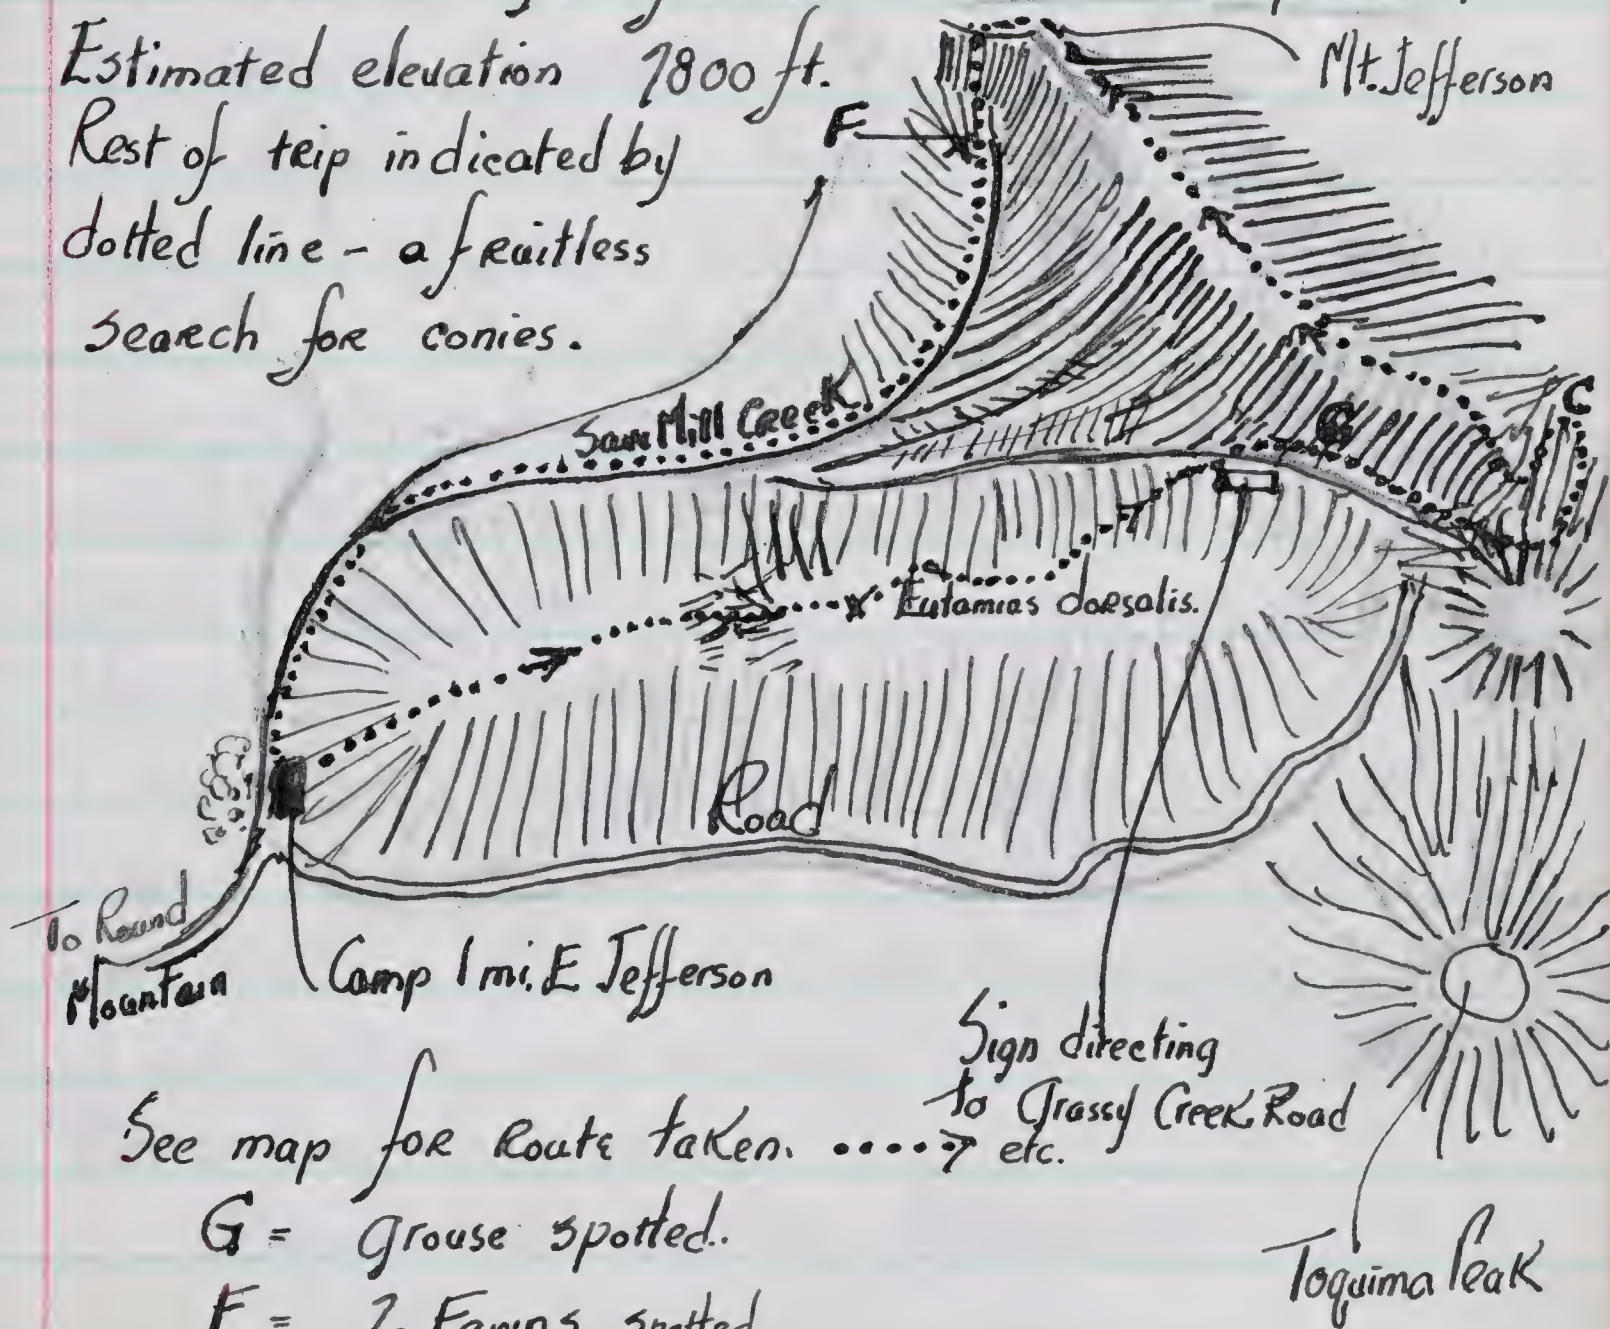 Estimated elevation 7800 ft.
Rest of trip indicated by
dotted line - a fruitless
search for conies.
Mt. Jefferson
F
C
Saw Mill Creek
G
Eutamias dorsalis.
Road
To Round
Mountain
Camp 1 mi. E Jefferson
Sign directing
to Grassy Creek Road
See map for Route taken. •••••> etc.
G = grouse spotted.
Toquima Peak
F = 2 Fawns spotted